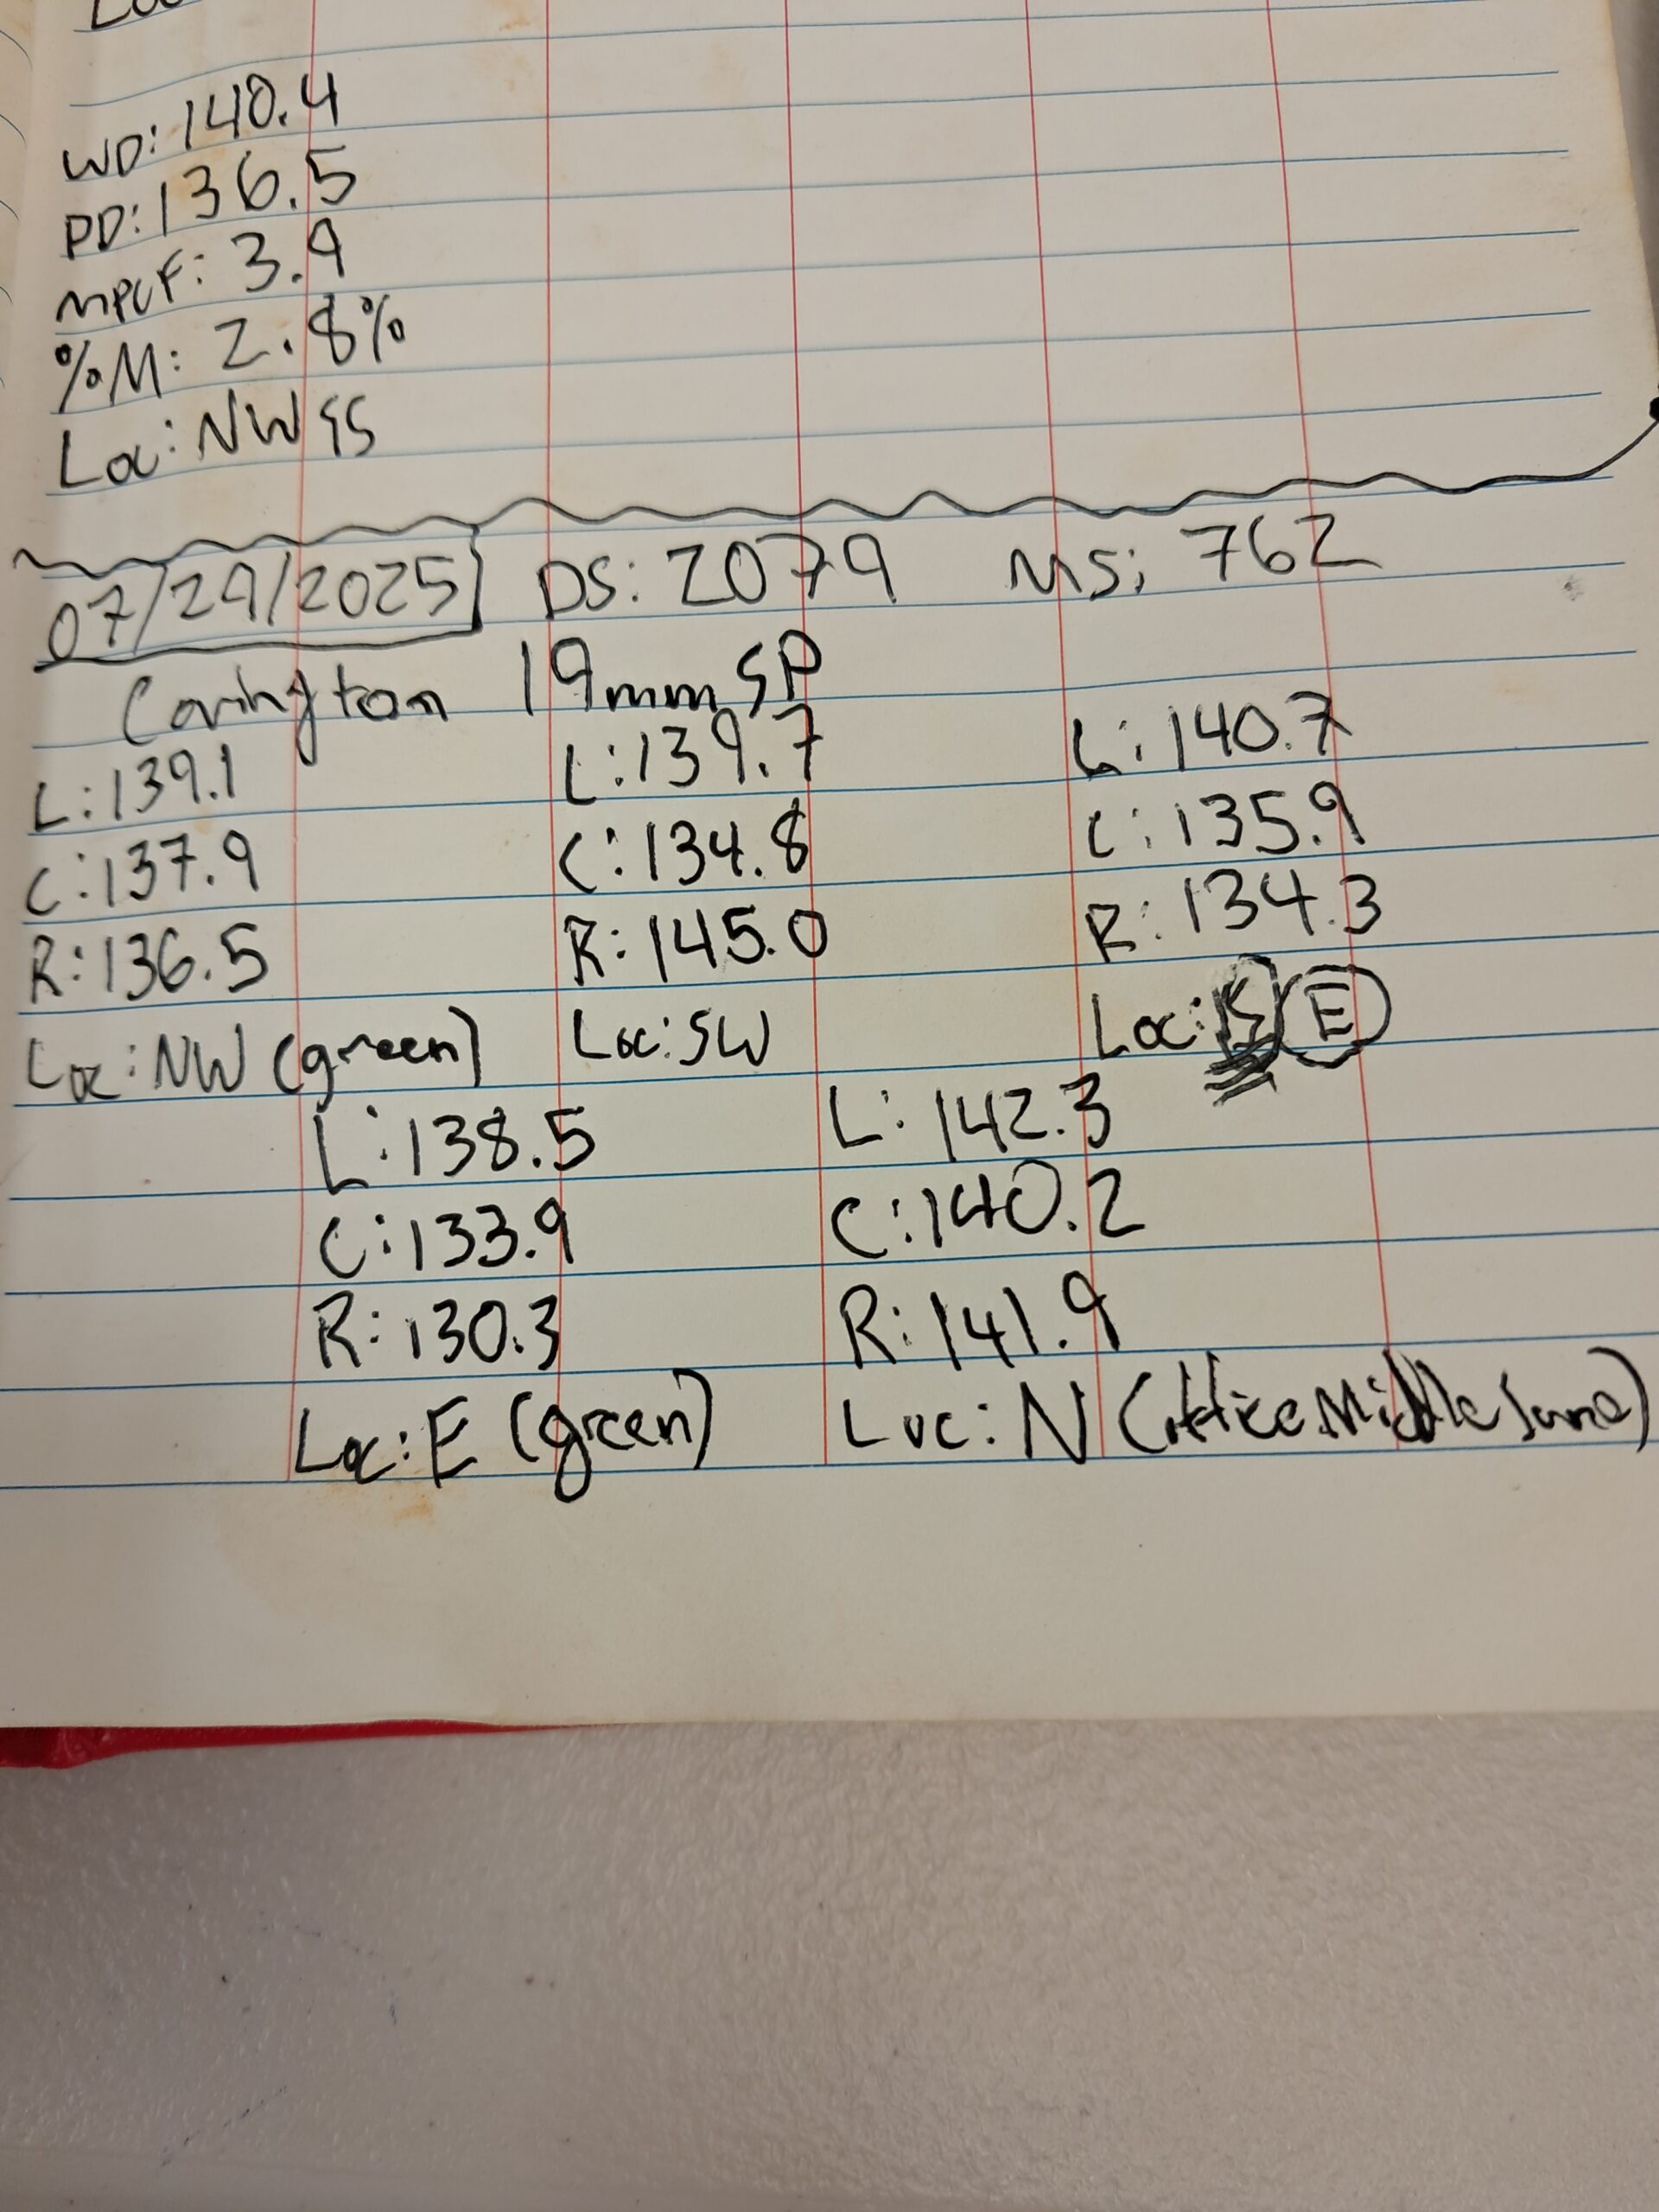 WD: 140.4
PD: 136.5
MPCF: 3.9
%M: 2.8%
Loc: NW SS
07/29/2025 DS: 2079 MS: 762
Covington 19mm SP
L: 139.1
C: 137.9
R: 136.5
Loc: NW (green)
L: 139.7
C: 134.8
R: 145.0
Loc: SW
L: 140.7
C: 135.9
R: 134.3
Loc: E
L: 138.5
C: 133.9
R: 130.3
Loc: E (green)
L: 142.3
C: 140.2
R: 141.9
Loc: N (office Middle